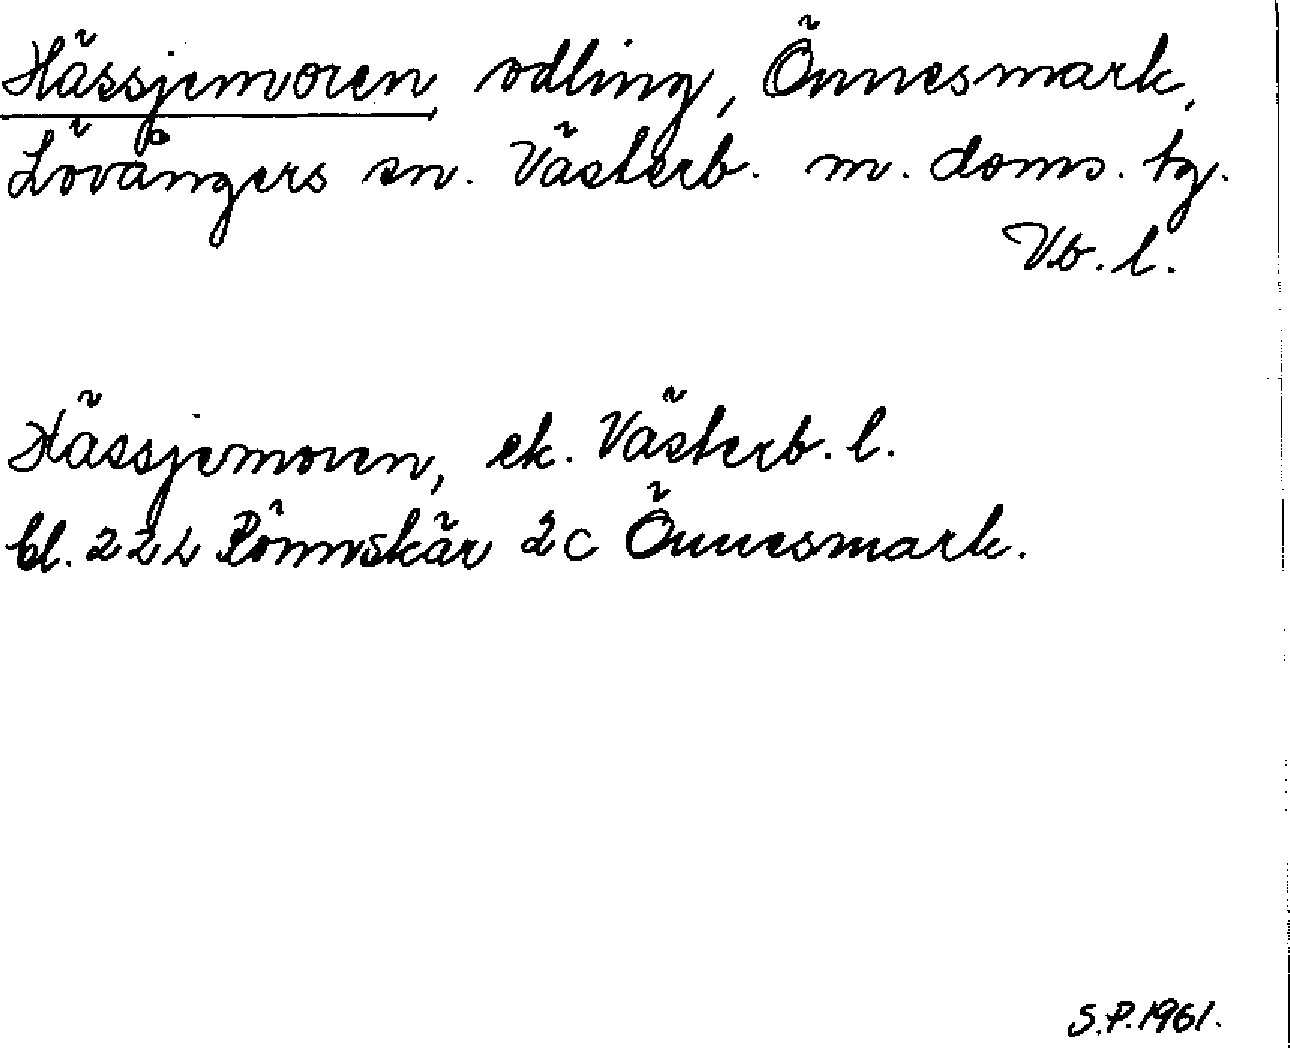 Hässjemoren, odling, Önnesmark,
Lövångers sn. Västerb. m. doms. tg.
Vb. l.
Hässjemoren, ek. Västerb. l.
bl. 22L Rönnskär 2c Önnesmark.
S.P. 1961.